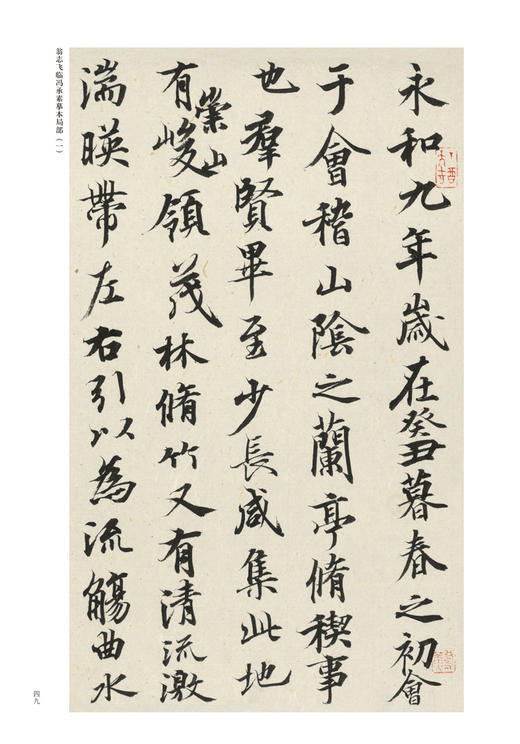 永和九年歲在癸丑暮春之初會
于會稽山陰之蘭亭脩稧事
也羣賢畢至少長咸集此地
有崇山峻領茂林脩竹又有清流激
湍暎帶左右引以為流觴曲水
翁志飞临冯承素摹本局部（一）
四九